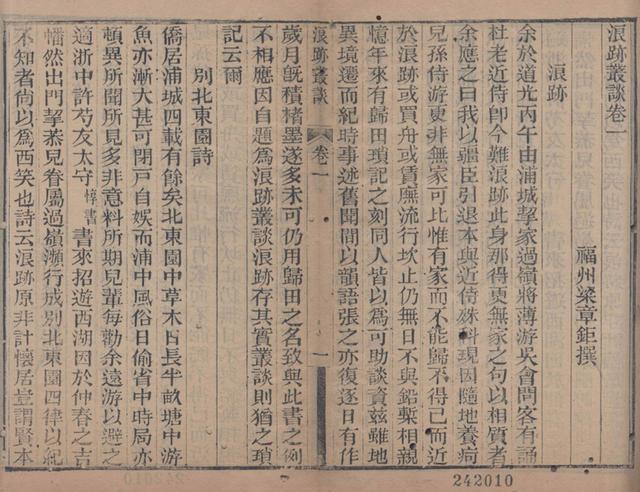 浪跡叢談卷一
福州梁章鉅撰
浪跡
余於道光丙午由浦城挈家過嶺將薄游吳會問客有誦
杜老近侍卽今難浪跡此身那得更無家之句以相質者
余應之曰我以疆臣引退本與近侍殊科現因隨地養疴
兒孫侍游更非無家可比惟有家而不能歸不得已而近
於浪跡或買舟或賃廡流行坎止仍無日不與鉛槧相親
憶年來有歸田瑣記之刻同人皆以爲可助談資茲雖地
異境遷而紀時事述舊聞間以韻語張之亦復逐日有作
歲月旣積楮墨遂多未可仍用歸田之名致與此書之例
不相應因自題爲浪跡叢談浪跡存其實叢談則猶之瑣
記云爾
浪跡叢談
卷一
一
別北東園詩
僑居浦城四載有餘矣北東園中草木日長半畝塘中游
魚亦漸大甚可閉戸自娛而浦中風俗日偷省中時局亦
頓異所聞所見多非意料所期兒輩每勸余遠游以避之
適浙中許芍友太守
惇書
書來招遊西湖因於仲春之吉
幡然出門挈恭兒眷屬過嶺瀕行成別北東園四律以紀
不知者尚以爲西笑也詩云浪跡原非計懷居豈謂賢本
242010